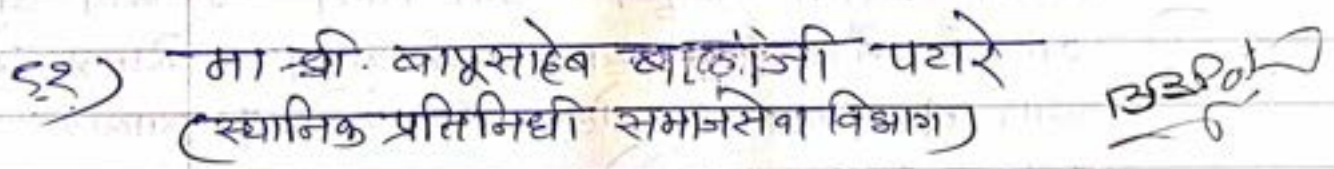 ६२) मा श्री. बापूसाहेब बाळाजी पटारे
(स्थानिक प्रतिनिधी समाजसेवा विभाग)